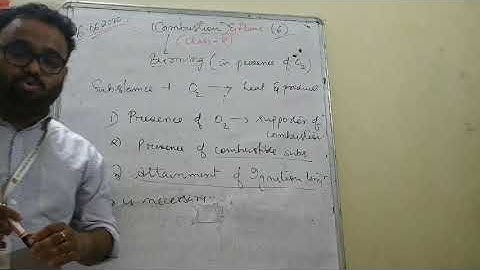 (Combustion) & Flame (6)
(Class-8)
Burning (in presence of O2)
Substance + O2 → heat & product
1) Presence of O2 → supporter of combustion
2) Presence of combustible subs
3) Attainment of Ignition temp
is necessary